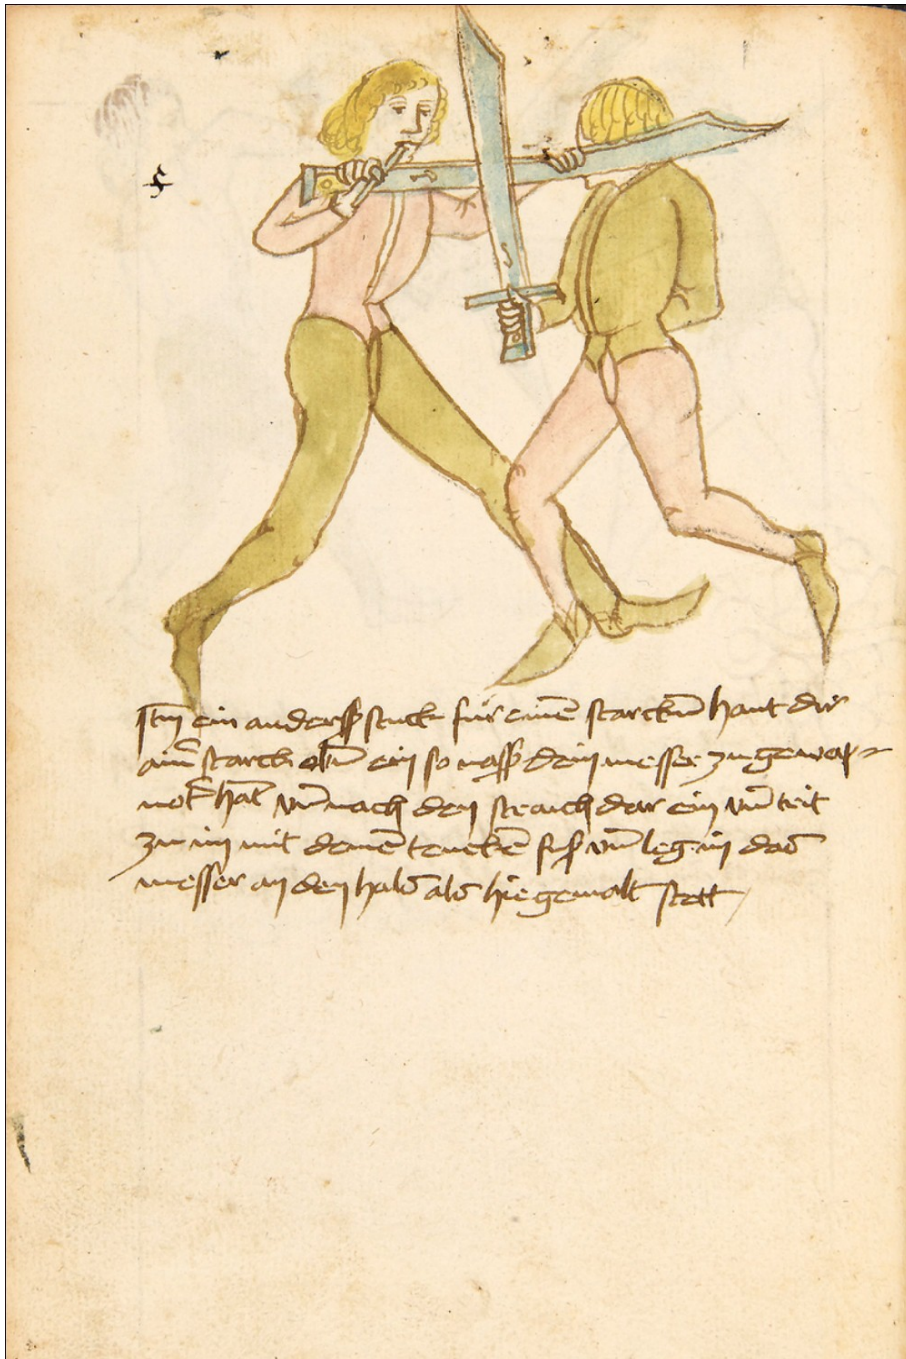 Itm ein anderß stuck für einē starckn̄ haut dir
ainr̄ starck obn̄ ein so vaß dein messer zu gewap-
noter hāt vn̄ vach den straich dar ein vn̄ trit
zu im mit dem̄ lencken fuß vn̄ leg im das
messer an den hals als hie gemalt stett